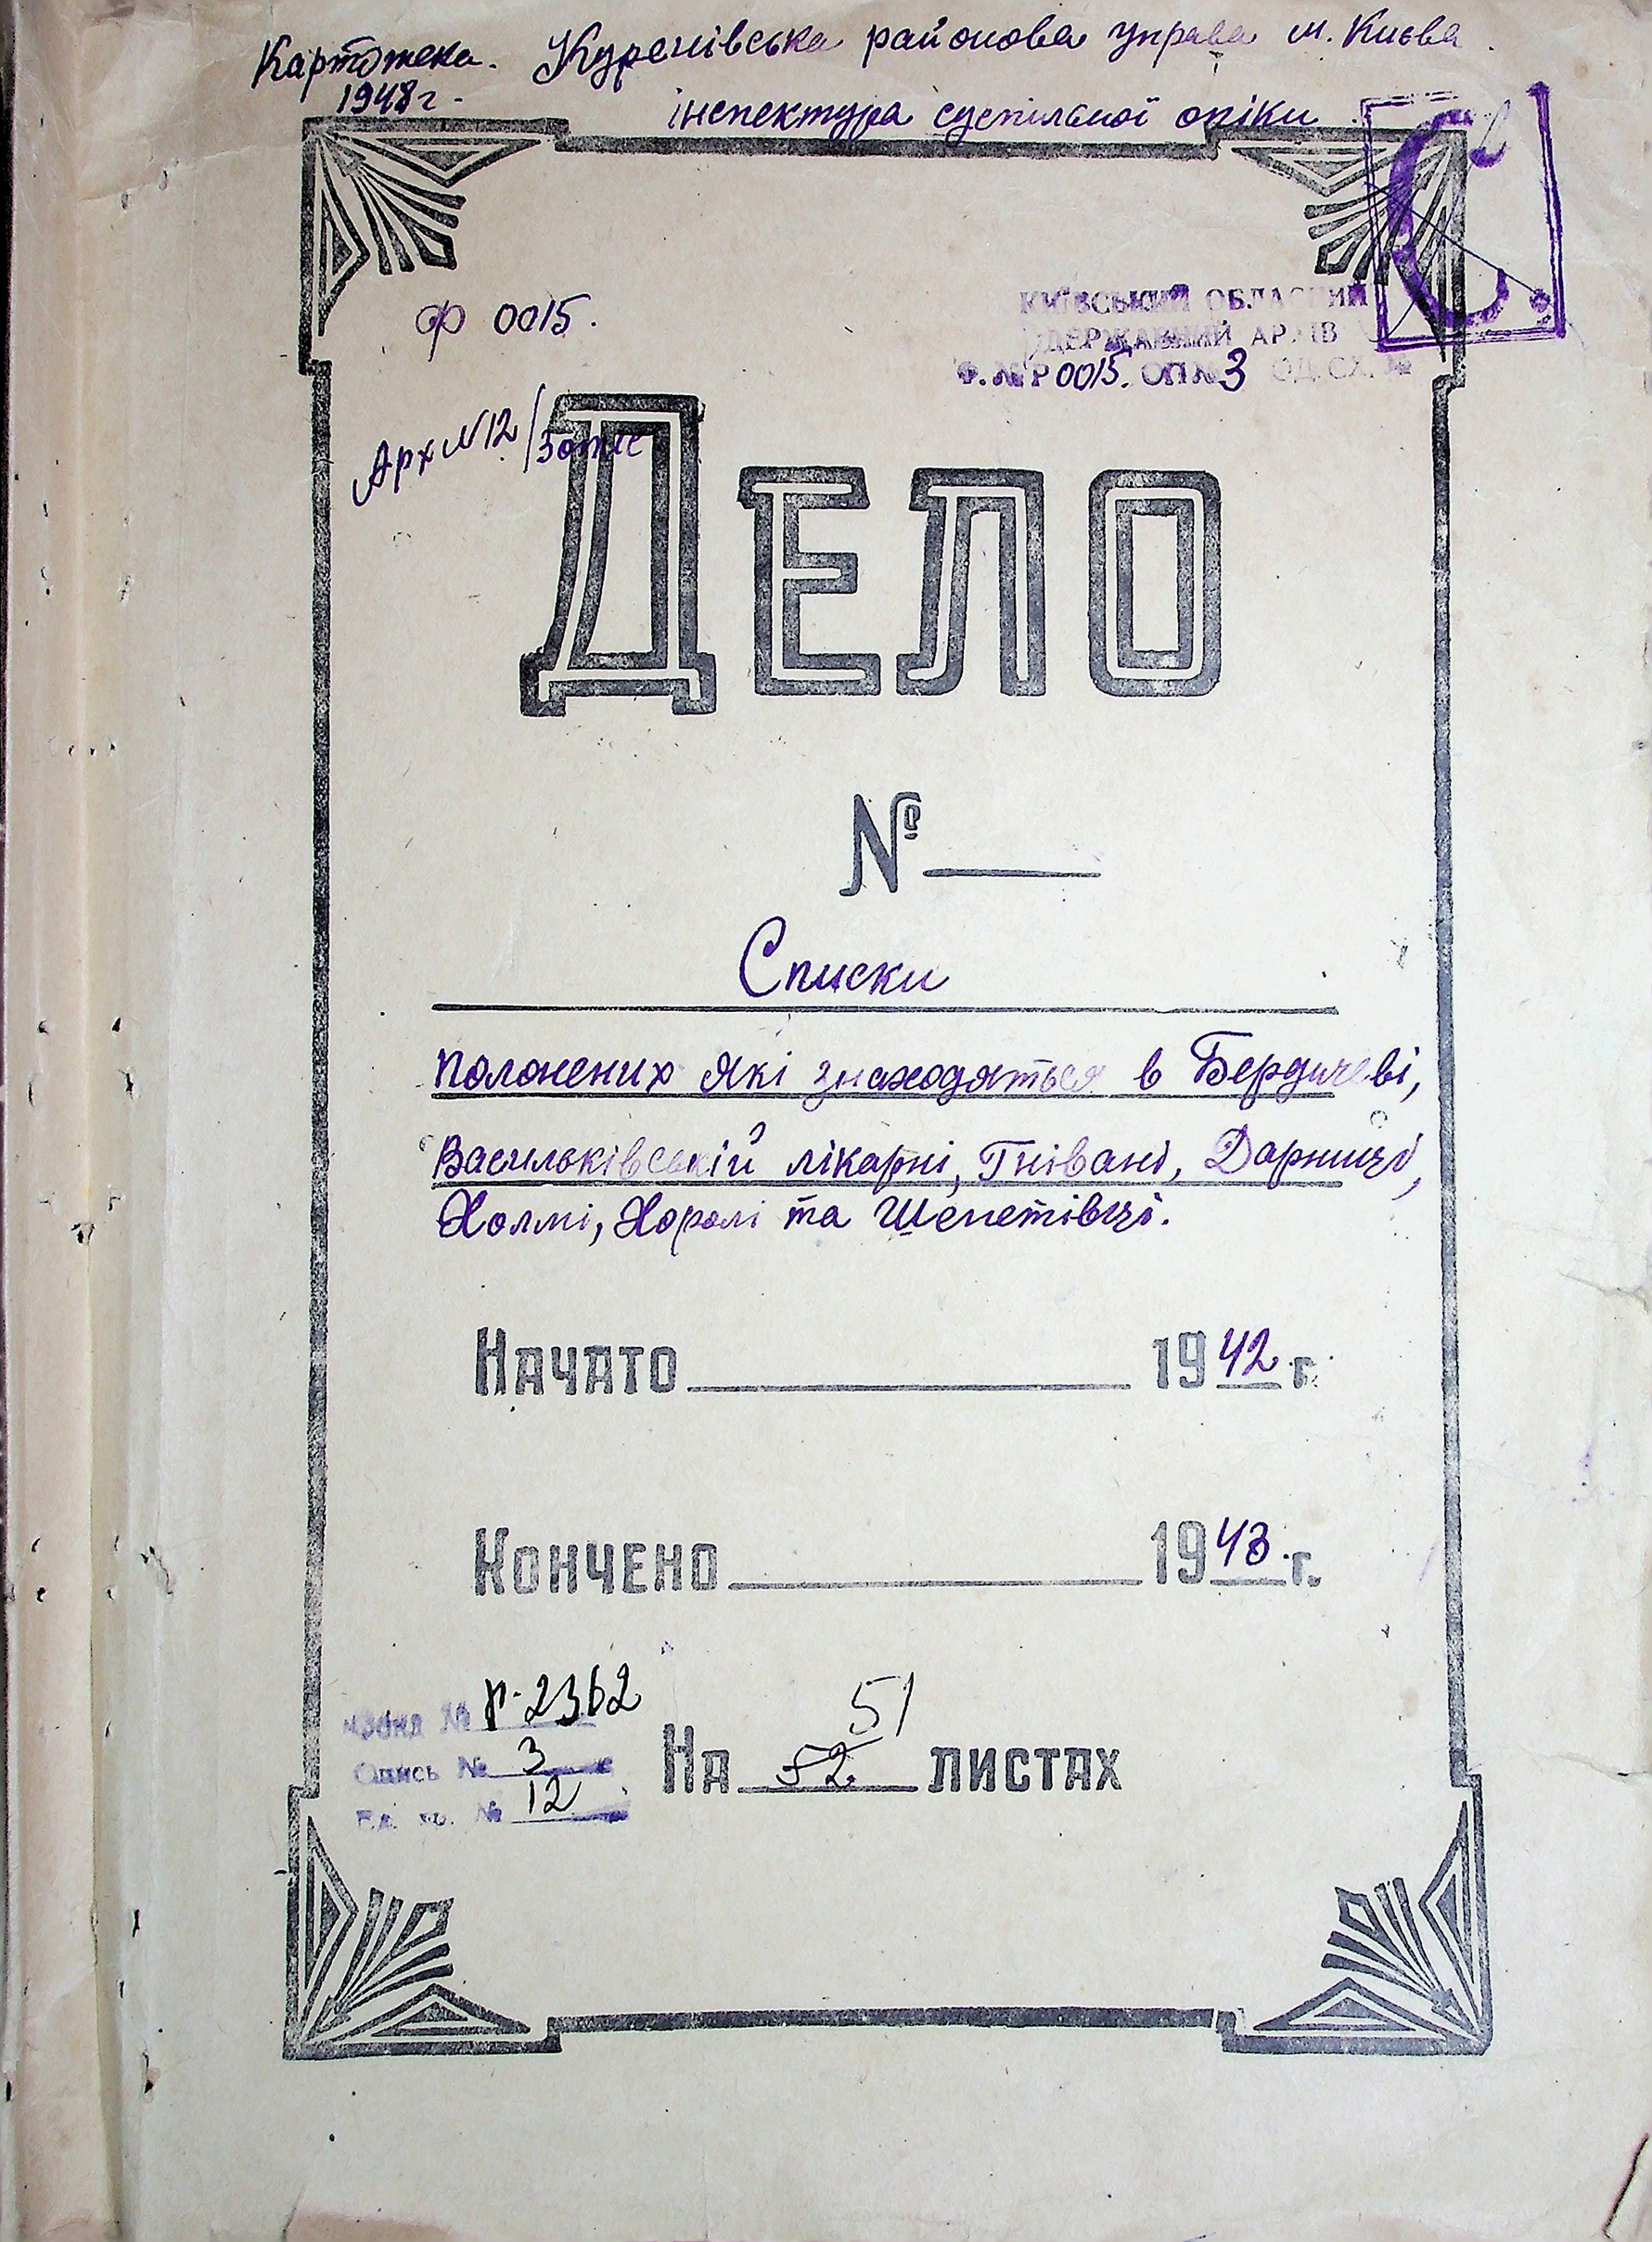 Картотека. Куренівська районова управа м. Києва.
1948 г.
інспектура суспільної опіки
С
Ф 0015.
КИЇВСЬКИЙ ОБЛАСНИЙ
ДЕРЖАВНИЙ АРХІВ
Ф. № Р 0015. ОП № 3 ОД. СХ. №
Арх №12/3 опис
ДЕЛО
№
Списки
полонених які знаходяться в Бердичеві,
Васильківській лікарні, Гнівані, Дарниці,
Холмі, Хоролі та Шепетівці.
НАЧАТО 1942 г.
КОНЧЕНО 1943 г.
Фонд № Р-2362
Опись № 3
Ед. хр. № 12
51
НА 52 ЛИСТАХ